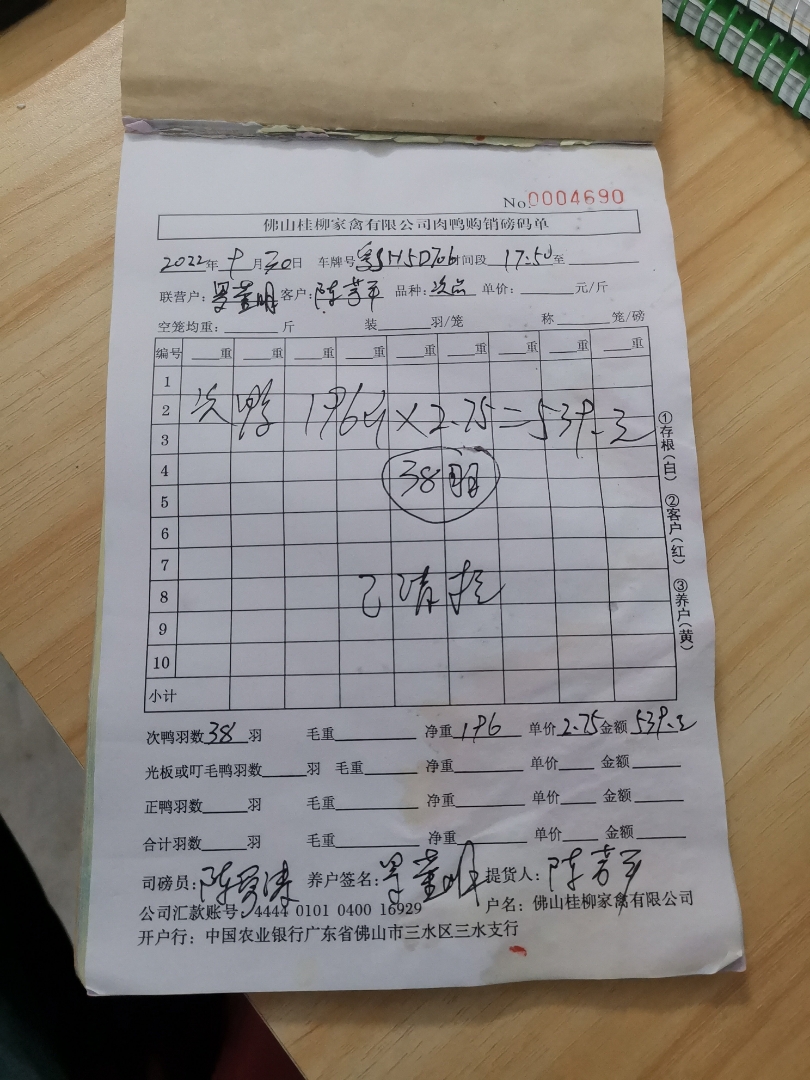 No.0004690
佛山桂柳家禽有限公司肉鸭购销磅码单
2022年9月30日 车牌号 粤H5D706时间段 17:50至
联营户: 罗董明 客户: 陈芳平 品种: 次品 单价: 元/斤
空笼均重: 斤 装 羽/笼 称 笼/磅
编号 重 重 重 重 重 重 重 重 重
1
2 次鸭 196斤×2.75=539.元
3
4 38羽
5
6
7
8 已清
9
10
小计
①存根(白) ②客户(红) ③养户(黄)
次鸭羽数38羽 毛重 净重196 单价2.75金额539.元
光板或叮毛鸭羽数 羽 毛重 净重 单价 金额
正鸭羽数 羽 毛重 净重 单价 金额
合计羽数 羽 毛重 净重 单价 金额
司磅员: 陈 涛 养户签名: 罗董明 提货人: 陈芳平
公司汇款账号: 4444 0101 0400 16929 户名: 佛山桂柳家禽有限公司
开户行: 中国农业银行广东省佛山市三水区三水支行